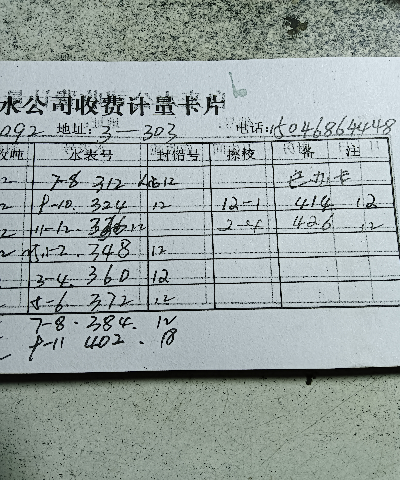 水公司收费计量卡片
092 地址:3-303 电话:15046864448
水表号 封铅号 擦校 备 注
7-8 312 12 已办卡
9-10 324 12 12-1 414 12
11-12 336 12 2-4 426 12
1-2 348 12
3-4 360 12
5-6 372 12
7-8 384 12
9-11 402 18